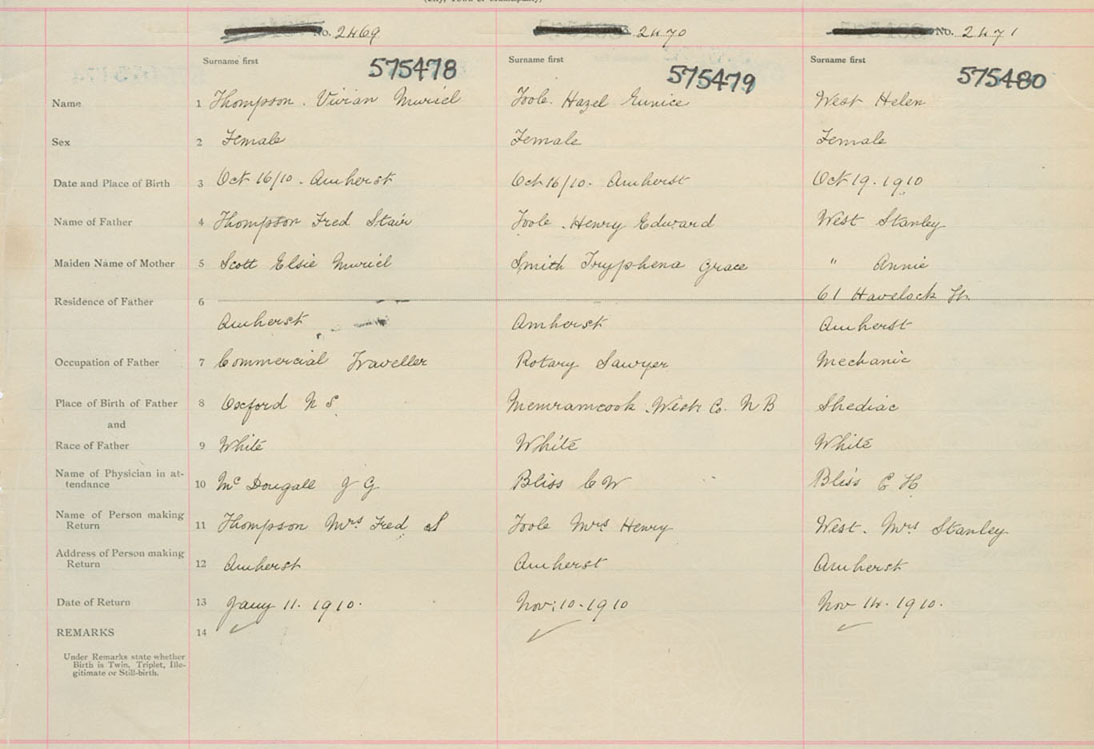 No. 2469 2470 No. 2471
Surname first Surname first Surname first
575478 575479 575480
Name 1 Thompson. Vivian Muriel Toole. Hazel Eunice West Helen
Sex 2 Female Female Female
Date and Place of Birth 3 Oct 16/10. Amherst Oct 16/10. Amherst Oct 19. 1910
Name of Father 4 Thompson Fred Stair Toole. Henry Edward West Stanley
Maiden Name of Mother 5 Scott Elsie Muriel Smith Tryphena Grace " Annie
Residence of Father 6 61 Havelock St.
Amherst Amherst Amherst
Occupation of Father 7 Commercial Traveller Rotary Sawyer Mechanic
Place of Birth of Father 8 Oxford N S. Memramcook West Co. N B Shediac
and
Race of Father 9 White White White
Name of Physician in at-
tendance 10 Mc Dougall J G Bliss C W Bliss C H
Name of Person making
Return 11 Thompson Mrs Fred S Toole Mrs Henry West. Mrs Stanley
Address of Person making
Return 12 Amherst Amherst Amherst
Date of Return 13 Jany 11. 1910. Nov. 10. 1910 Nov 14. 1910.
REMARKS 14
Under Remarks state whether
Birth is Twin, Triplet, Ille-
gitimate or Still-birth.